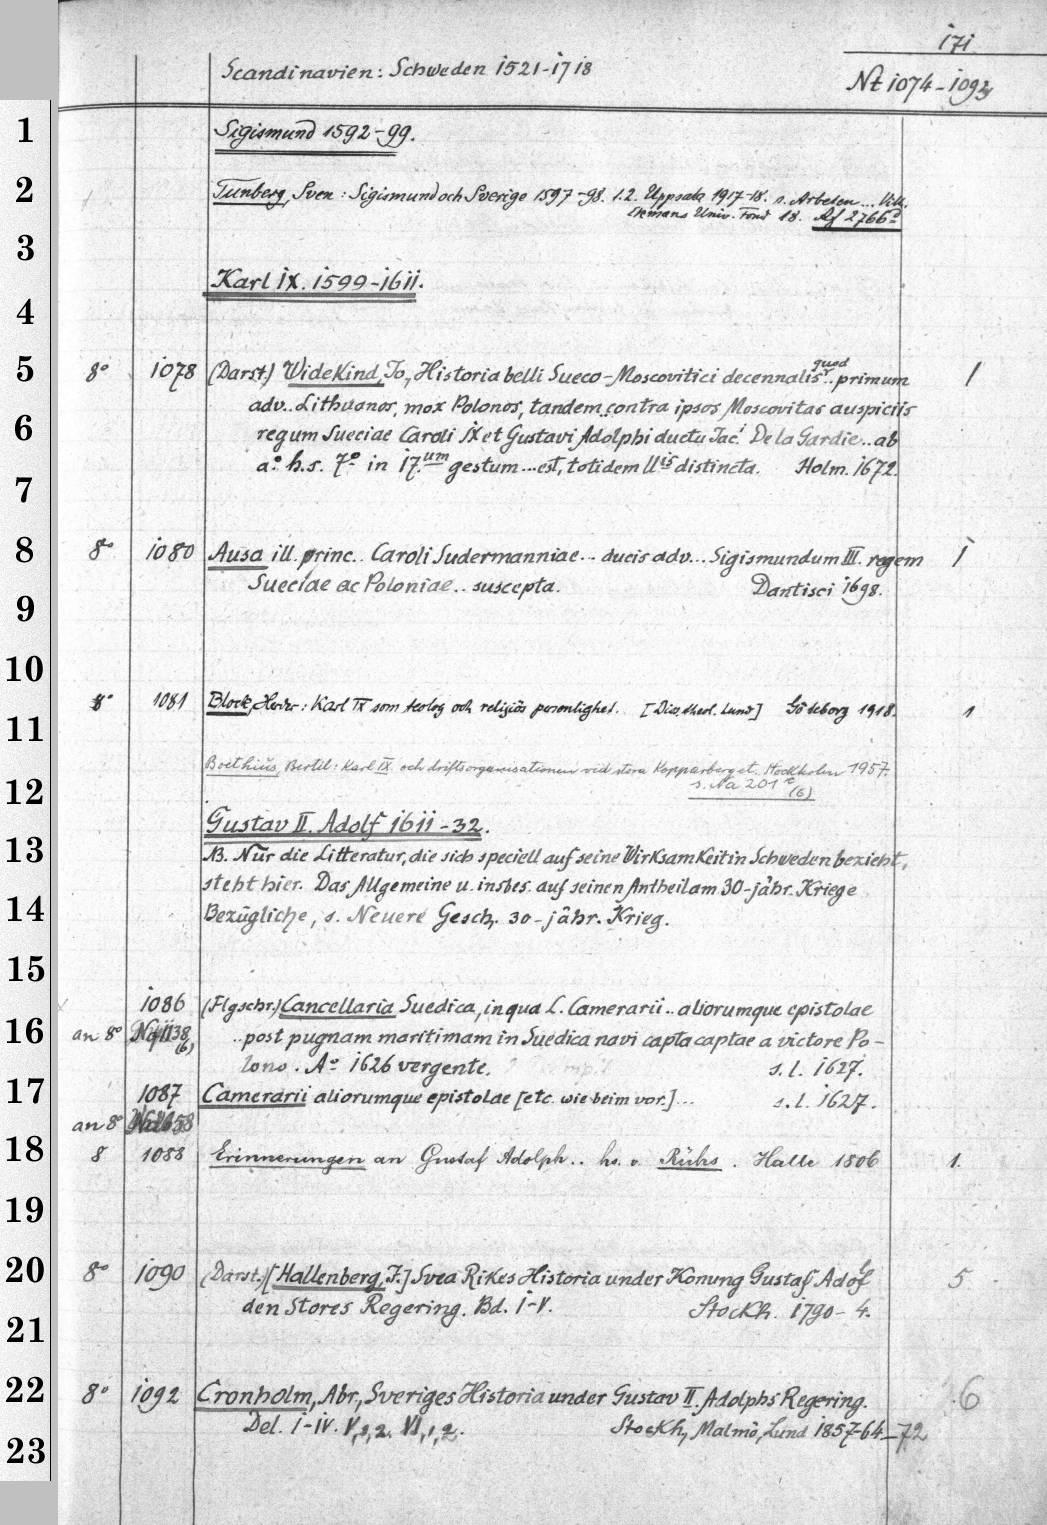 171
Scandinavien: Schweden 1521-1718
Nt 1074-1092
1
Sigismund 1592-99.
2
Tunberg, Sven: Sigismund och Sverige 1597-98. 1.2. Uppsala 1917-18. s. Arbeten... Vilh.
Ekmans Univ. Fond 18. Af 2766
3
Karl IX. 1599-1611.
4
quod
5
8° 1078 (Darst.) Widekind, Jo., Historia belli Sueco-Moscovitici decennalis.. primum 1
adv.. Lithuanos, mox Polonos, tandem.. contra ipsos Moscovitas auspiciis
6
regum Sueciae Caroli IX et Gustavi Adolphi ductu Jac. De la Gardie.. ab
a° h.s. 7° in 17.um gestum... est, totidem ll is distincta. Holm. 1672.
7
8
8° 1080 Ausa ill. princ.. Caroli Sudermanniae.. ducis adv... Sigismundum III. regem 1
Sueciae ac Poloniae.. suscepta. Dantisci 1698.
9
10
8° 1081 Block, : Karl IX som teolog och religiös personlighet. [Diss. theol. Lund] Göteborg 1918. 1
11
Boethius, Bertil: Karl IX. och driftsorganisationen vid stora Kopparberget. Stockholm 1957.
s. Na 201 (6)
12
Gustav II. Adolf 1611-32.
13
NB. Nur die Litteratur, die sich speciell auf seine Wirksamkeit in Schweden bezieht,
steht hier. Das Allgemeine u. insbes. auf seinen Antheil am 30-jähr. Kriege
14
Bezügliche, s. Neuere Gesch. 30-jähr. Krieg.
15
1086 (Flgschr.) Cancellaria Suedica, in qua L. Camerarii.. aliorumque epistolae
16
an 8° 1138 (6) ..post pugnam maritimam in Suedica navi capta captae a victore Po-
lono. A° 1626 vergente. s. l. 1627.
17
1087 Camerarii aliorumque epistolae [etc. wie beim vor.]... s. l. 1627.
an 8°
18
8 1088 Erinnerungen an Gustaf Adolph.. hs. v. Rühs. Halle 1806 1.
19
20
8° 1090 (Darst.) [Hallenberg, J.] Svea Rikes Historia under Konung Gustaf Adolf 5
den Stores Regering. Bd. I-V. Stockh. 1790-4.
21
22
8° 1092 Cronholm, Abr., Sveriges Historia under Gustav II. Adolphs Regering. 6
Del. I-IV. V,1,2. VI,1,2. Stockh, Malmö, Lund 1857-64-72
23